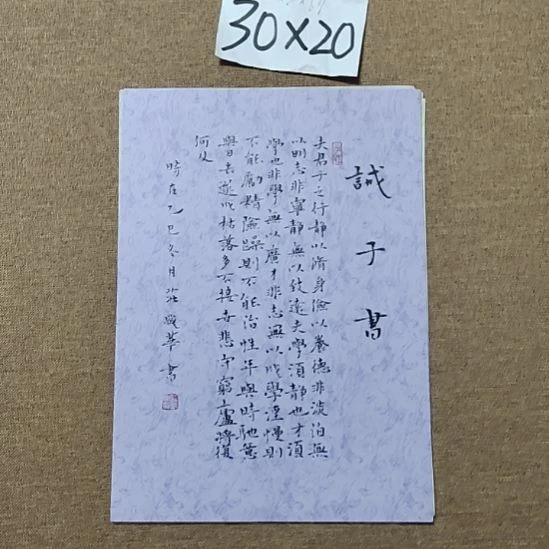 30×20
誡子書
夫君子之行靜以脩身儉以養德非淡泊無
以明志非寧靜無以致遠夫學須靜也才須
學也非學無以廣才非志無以成學淫慢則
不能勵精險躁則不能治性年與時馳意
與日去遂成枯落多不接世悲守窮廬將復
何及
時在乙巳冬月
書